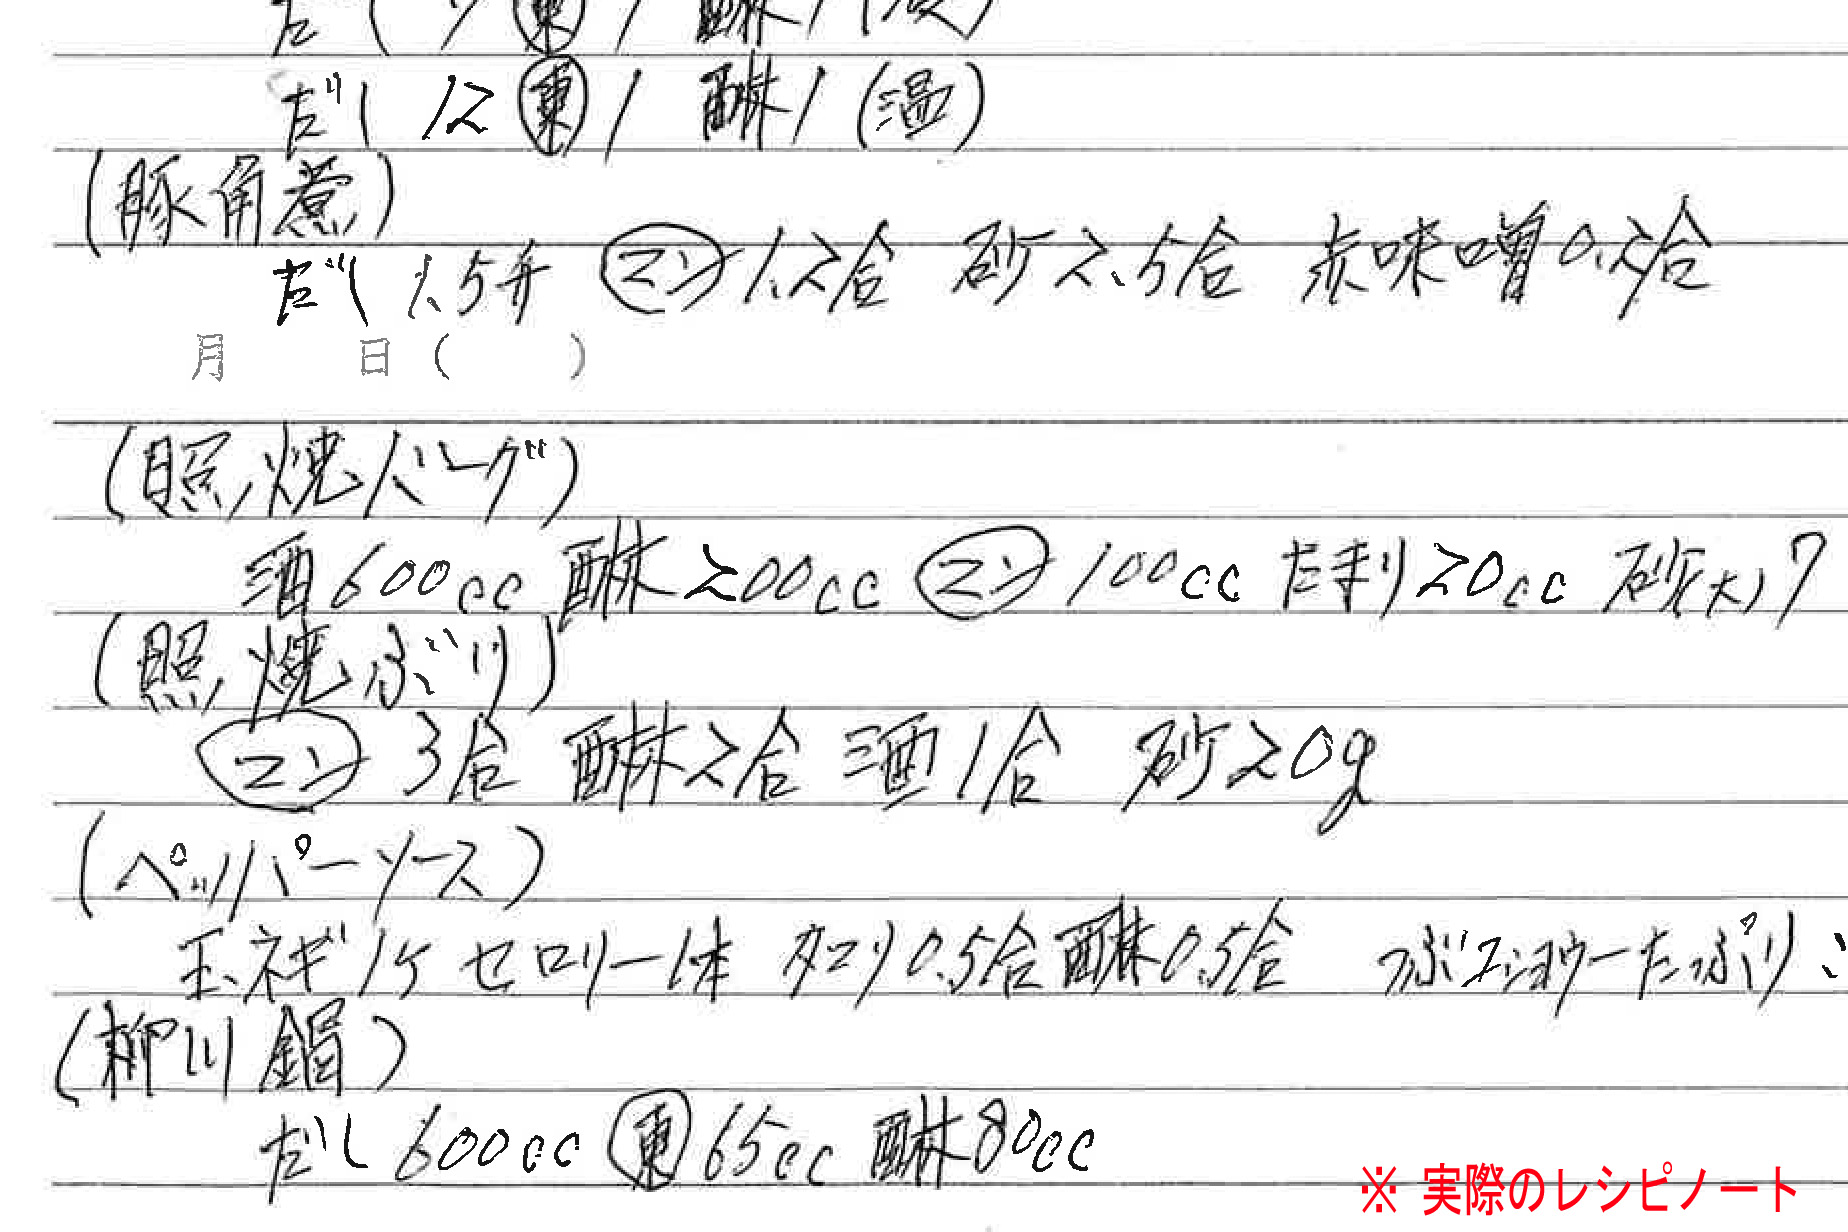 だし 12 東 1 醂 1 (温)
(豚角煮)
だし 1.5升 マン 1.2合 砂 2.5合 赤味噌 0.2合
月 日( )
(照焼バーグ)
酒 600cc 醂 200cc マン 100cc たまり 20cc 砂大 7
(照焼ぶり)
マン 3合 醂 2合 酒 1合 砂 20g
(ペッパーソース)
玉ネギ 1ケ セロリー 1本 タマリ 0.5合 醂 0.5合 つぶコショウーたっぷり
(柳川鍋)
だし 600cc 東 65cc 醂 80cc
※ 実際のレシピノート